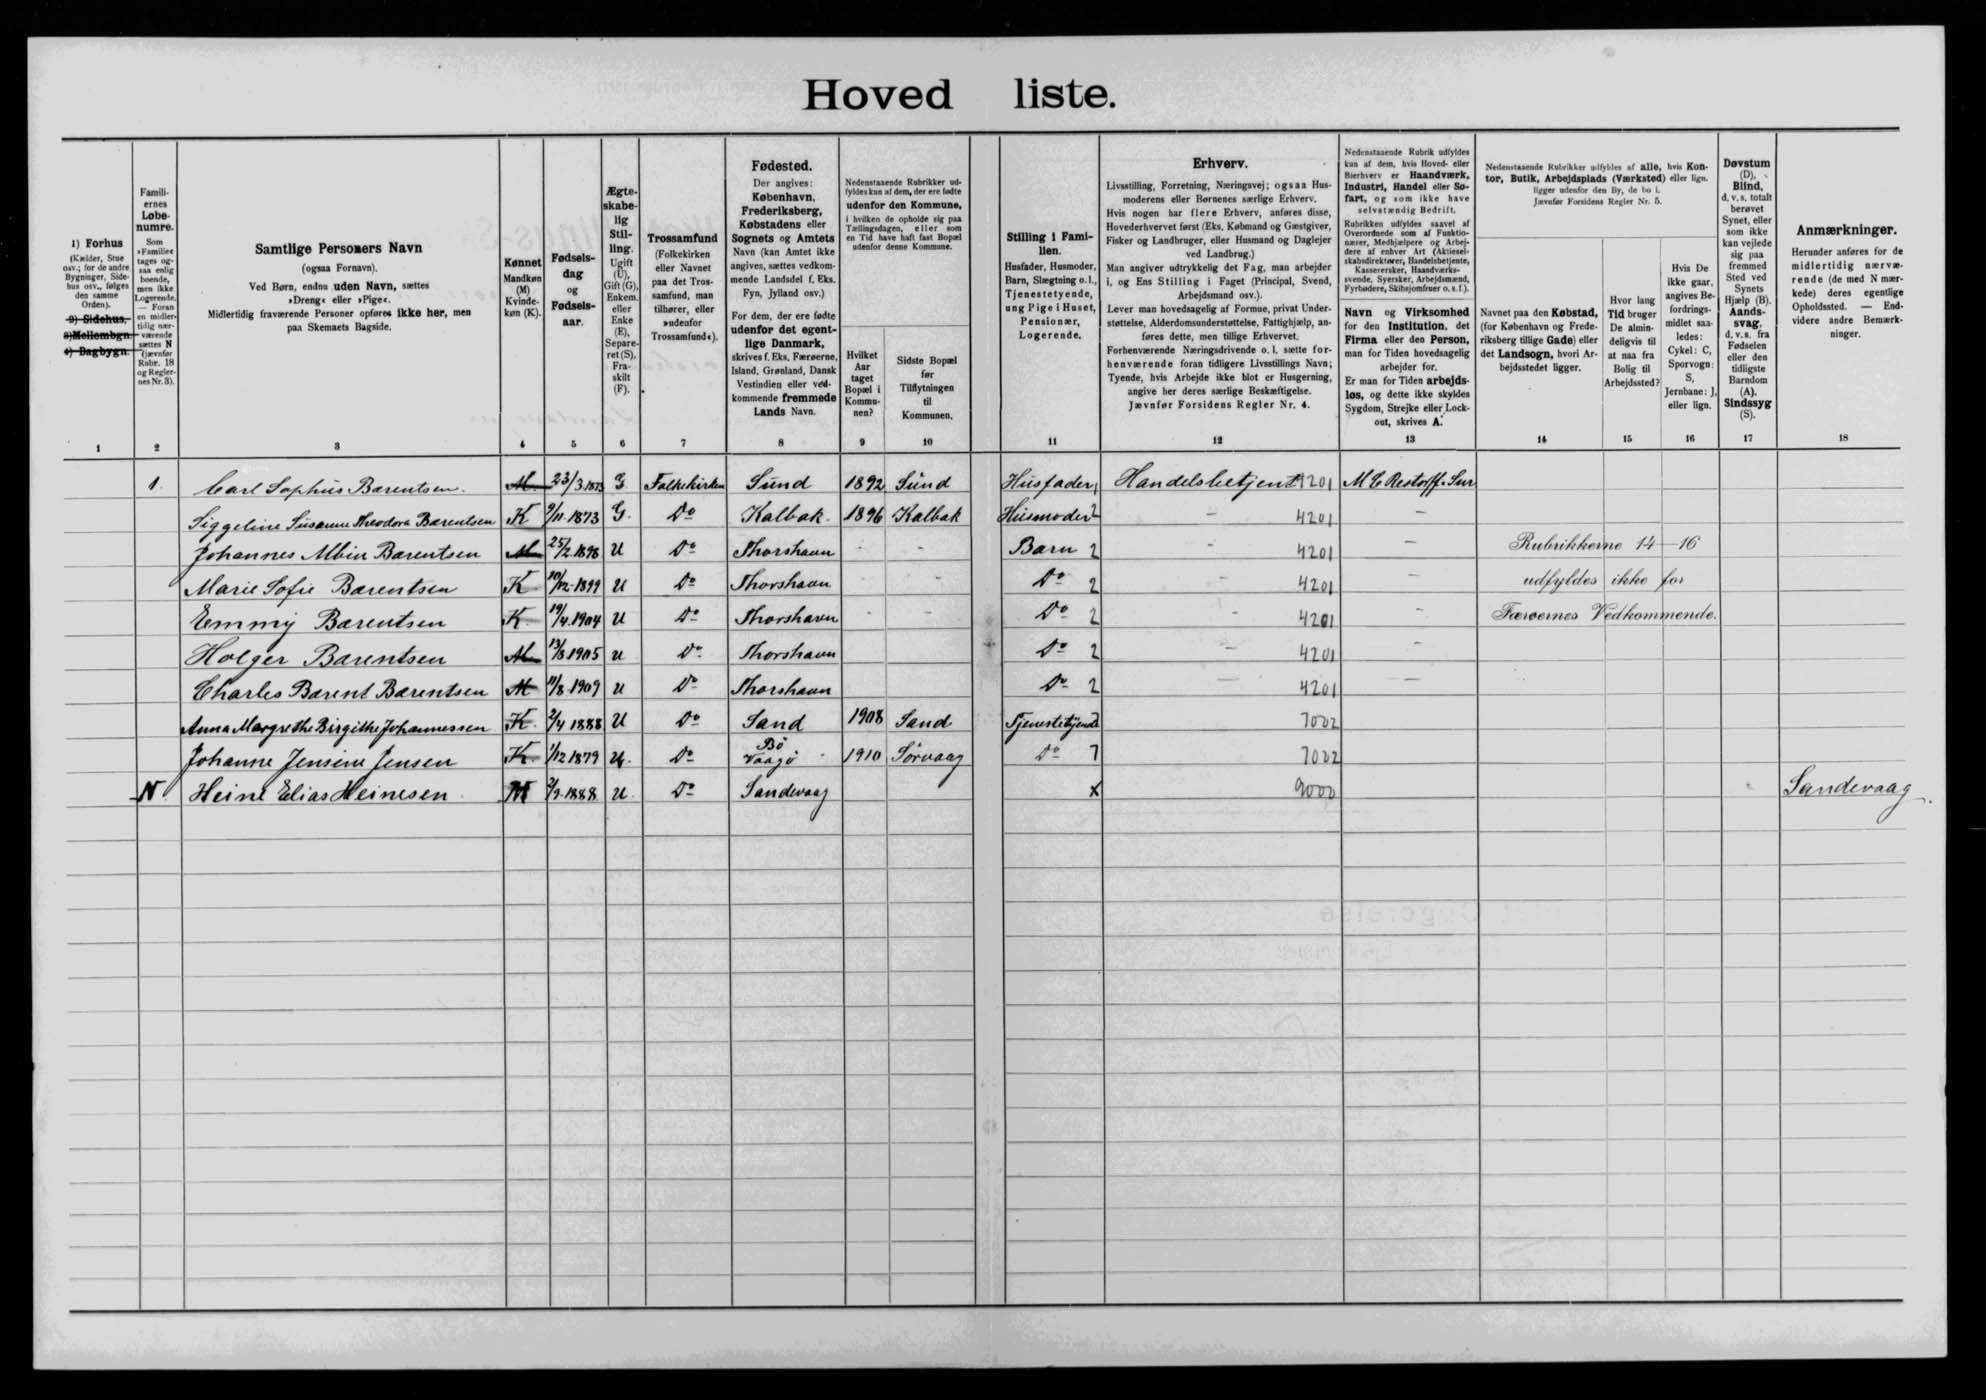 Hoved liste.
1) Forhus
(Kælder, Stue
osv.; for de andre
Bygninger, Side-
hus osv., følges
den samme
Orden).
2) Sidehus,
3) Mellembgn.
4) Bagbygn.
1
Famili-
ernes
Løbe-
numre.
Som
»Familie«
tages og-
saa enlig
boende,
men ikke
Logerende.
— Foran
en midler-
tidig nær-
værende
sættes N
(jævnfør
Rubr. 18
og Regler-
nes Nr. 3).
2
Samtlige Personers Navn
(ogsaa Fornavn).
Ved Børn, endnu uden Navn, sættes
»Dreng« eller »Pige«.
Midlertidig fraværende Personer opføres ikke her, men
paa Skemaets Bagside.
3
Kønnet
Mandkøn
(M)
Kvinde-
køn (K).
4
Fødsels-
dag
og
Fødsels-
aar.
5
Ægte-
skabe-
lig
Stil-
ling.
Ugift
(U),
Gift (G),
Enkem.
eller
Enke
(E),
Separe-
ret (S),
Fra-
skilt
(F).
6
Trossamfund
(Folkekirken
eller Navnet
paa det Tros-
samfund, man
tilhører, eller
»udenfor
Trossamfund«).
7
Fødested.
Der angives:
København,
Frederiksberg,
Købstadens eller
Sognets og Amtets
Navn (kan Amtet ikke
angives, sættes vedkom-
mende Landsdel f. Eks.
Fyn, Jylland osv.)
For dem, der ere fødte
udenfor det egent-
lige Danmark,
skrives f. Eks. Færøerne,
Island, Grønland, Dansk
Vestindien eller ved-
kommende fremmede
Lands Navn.
8
Nedenstaaende Rubrikker ud-
fyldes kun af dem, der ere fødte
udenfor den Kommune,
i hvilken de opholde sig paa
Tællingsdagen, eller som
en Tid have haft fast Bopæl
udenfor denne Kommune.
Hvilket
Aar
taget
Bopæl i
Kommu-
nen?
9
Sidste Bopæl
før
Tilflytningen
til
Kommunen.
10
Stilling i Fami-
lien.
Husfader, Husmoder,
Barn, Slægtning o. l.,
Tjenestetyende,
ung Pige i Huset,
Pensionær,
Logerende.
11
Erhverv.
Livsstilling, Forretning, Næringsvej; ogsaa Hus-
moderens eller Børnenes særlige Erhverv.
Hvis nogen har flere Erhverv, anføres disse,
Hovederhvervet først (Eks. Købmand og Gæstgiver,
Fisker og Landbruger, eller Husmand og Daglejer
ved Landbrug.)
Man angiver udtrykkelig det Fag, man arbejder
i, og Ens Stilling i Faget (Principal, Svend,
Arbejdsmand osv.).
Lever man hovedsagelig af Formue, privat Under-
støttelse, Alderdomsunderstøttelse, Fattighjælp, an-
føres dette, men tillige Erhvervet.
Forhenværende Næringsdrivende o. l. sætte for-
henværende foran tidligere Livsstillings Navn;
Tyende, hvis Arbejde ikke blot er Husgerning,
angive her deres særlige Beskæftigelse.
Jævnfør Forsidens Regler Nr. 4.
12
Nedenstaaende Rubrik udfyldes
kun af dem, hvis Hoved- eller
Bierhverv er Haandværk,
Industri, Handel eller Sø-
fart, og som ikke have
selvstændig Bedrift.
Rubrikken udfyldes saavel af
Overordnede som af Funktio-
nærer, Medhjælpere og Arbej-
dere af enhver Art (Aktiesel-
skabsdirektører, Handelsbetjente,
Kasserersker, Haandværks-
svende, Syersker, Arbejdsmænd,
Fyrbødere, Skibsjomfruer o. s. f.).
Navn og Virksomhed
for den Institution, det
Firma eller den Person,
man for Tiden hovedsagelig
arbejder for.
Er man for Tiden arbejds-
løs, og dette ikke skyldes
Sygdom, Strejke eller Lock-
out, skrives A.
13
Nedenstaaende Rubrikker udfyldes af alle, hvis Kon-
tor, Butik, Arbejdsplads (Værksted) eller lign.
ligger udenfor den By, de bo i.
Jævnfør Forsidens Regler Nr. 5.
Navnet paa den Købstad,
(for København og Frede-
riksberg tillige Gade) eller
det Landsogn, hvori Ar-
bejdsstedet ligger.
14
Hvor lang
Tid bruger
De almin-
deligvis til
at naa fra
Bolig til
Arbejdssted?
15
Hvis De
ikke gaar,
angives Be-
fordrings-
midlet saa-
ledes:
Cykel: C,
Sporvogn:
S,
Jernbane: J,
eller lign.
16
Døvstum
(D),
Blind,
d. v. s. totalt
berøvet
Synet, eller
som ikke
kan vejlede
sig paa
fremmed
Sted ved
Synets
Hjælp (B).
Aands-
svag,
d. v. s. fra
Fødselen
eller den
tidligste
Barndom
(A).
Sindssyg
(S).
17
Anmærkninger.
Herunder anføres for de
midlertidig nærvæ-
rende (de med N mær-
kede) deres egentlige
Opholdssted. — End-
videre andre Bemærk-
ninger.
18
1. Carl Sophus Barentsen. M. 23/3.1873 G Folkekirken Sund 1892 Sund Husfader 1 Handelsbetjent 4201 M C Restorff & Snr
Siggeline Susanne Theodora Barentsen K 9/11 1873 G. Do Kalbak 1896 Kalbak Husmoder 2 - 4201 -
Johannes Albin Barentsen M 25/2 1898 U Do Thorshavn - - Barn 2 - 4201 - Rubrikkerne 14-16
Marie Sofie Barentsen K 10/12-1899 U Do Thorshavn - - Do 2 - 4201 - udfyldes ikke for
Emmy Barentsen K. 19/4.1904 U Do Thorshavn - - Do 2 - 4201 - Færøernes Vedkommende.
Holger Barentsen M 13/8 1905 U Do Thorshavn Do 2 - 4201 -
Charles Barent Barentsen M 11/8-1909 U Do Thorshavn Do 2 - 4201 -
Anna Margrethe Birgithe Johannessen K. 2/4 1888 U Do Sand 1908 Sand Tjenestetyende 7 7002
Johanne Jensine Jensen K. 1/12 1879 U. Do Bö Vaagö 1910 Sörvaag Do 7 7002
N. Heine Elias Heinesen M 2/9-1888 U. Do Sandevaag x 9000 Sandevaag.